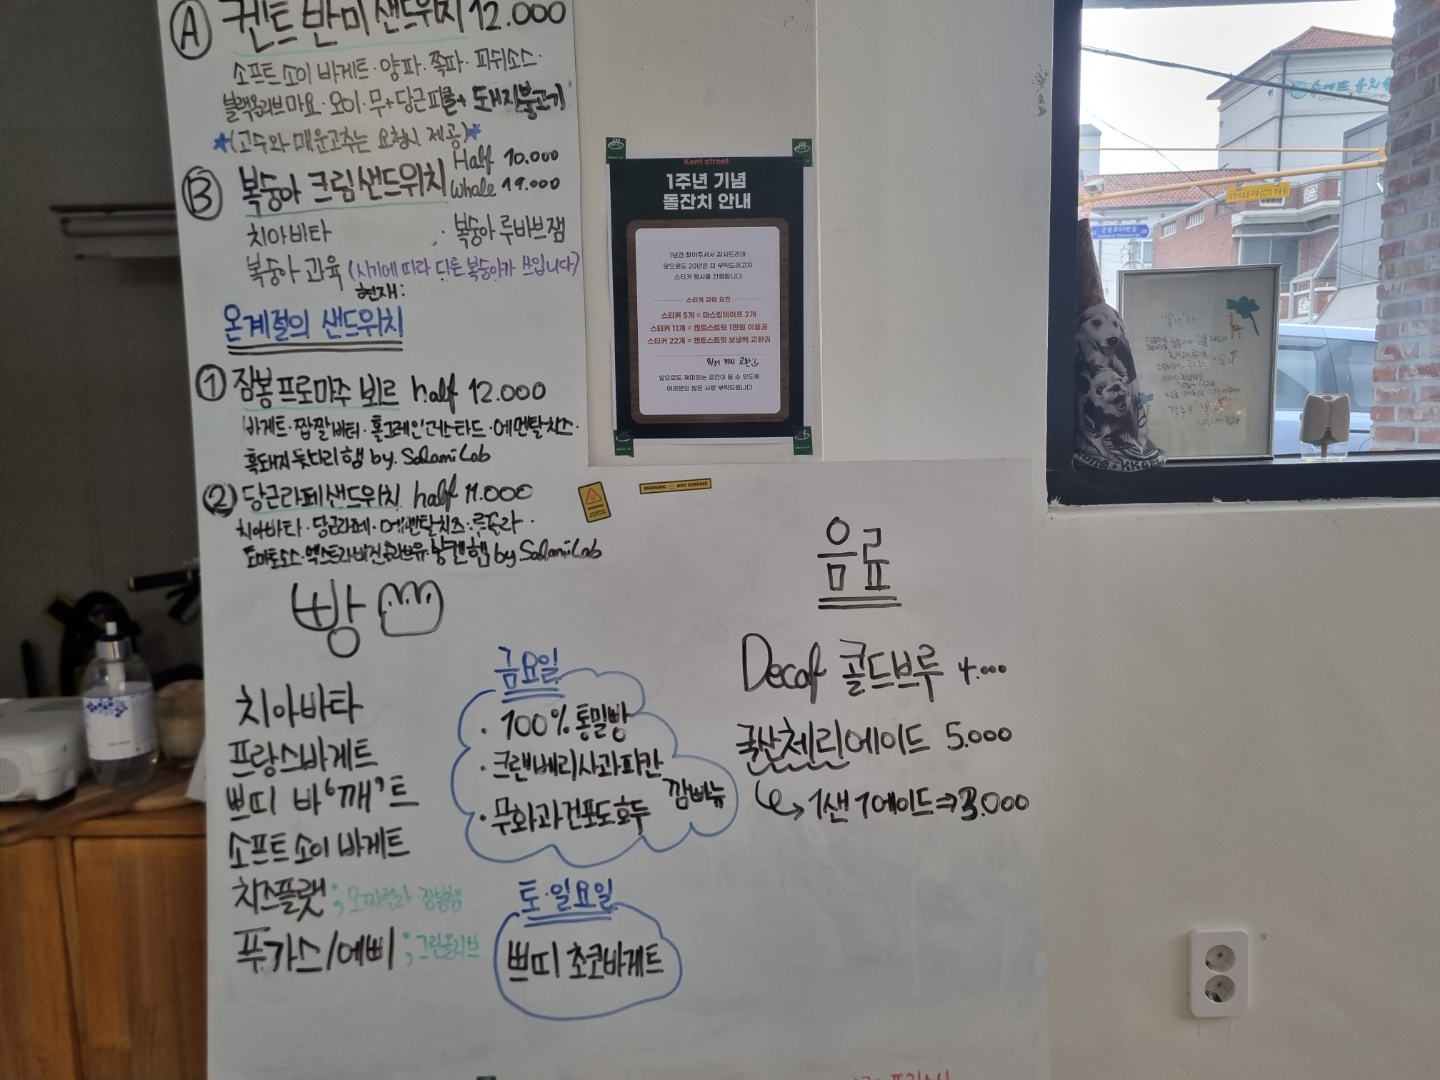 Ⓐ 켄트 반미 샌드위치 12.000
소프트 소이 바게트 · 양파 · 쪽파 · 피쉬소스 ·
블랙올리브마요 · 오이 · 무+당근 피클 + 돼지불고기
★(고수와 매운고추는 요청시 제공)★
Ⓑ 복숭아 크림샌드위치 Half 10.000
whale 19.000
치아바타 · 복숭아 루바브잼
복숭아 과육 (시기에 따라 다른 복숭아가 쓰입니다)
현재:
온계절의 샌드위치
① 잠봉 프로마주 뵈르 half 12.000
바게트 · 짭짤버터 · 홀그레인머스타드 · 에멘탈치즈 ·
흑돼지 뒷다리 햄 by. Salami Lab
② 당근라페샌드위치 half 11.000
치아바타 · 당근라페 · 에멘탈치즈 · 루꼴라 ·
토마토소스 · 엑스트라버진올리브유 · by. Salami Lab
빵
치아바타
프랑스바게트
쁘띠 바'깨'트
소프트 소이 바게트
치즈플랫 ; 모짜렐라 · 잠봉햄
푸가스/에삐 ; 그린올리브
금요일
· 100% 통밀빵
· 크랜베리사과피칸
· 무화과건포도호두 깜빠뉴
토·일요일
쁘띠 초코바게트
음료
Decaf 콜드브루 4.000
국산체리에이드 5.000
↳ 1샌 1에이드 ⇒ 3.000
Kent street
1주년 기념
돌잔치 안내
1년간 찾아주셔서 감사드리며
앞으로도 20년은 더 부탁드리고자
스티커 행사를 진행합니다
스티커 교환 요건
스티커 5개 = 마스킹테이프 2개
스티커 11개 = 켄트스트릿 1만원 이용권
스티커 22개 = 켄트스트릿 보냉백 교환권
8/31 까지 교환
앞으로도 재미있는 공간이 될 수 있도록
여러분의 많은 사랑 부탁드립니다
WARNING HOT SURFACE